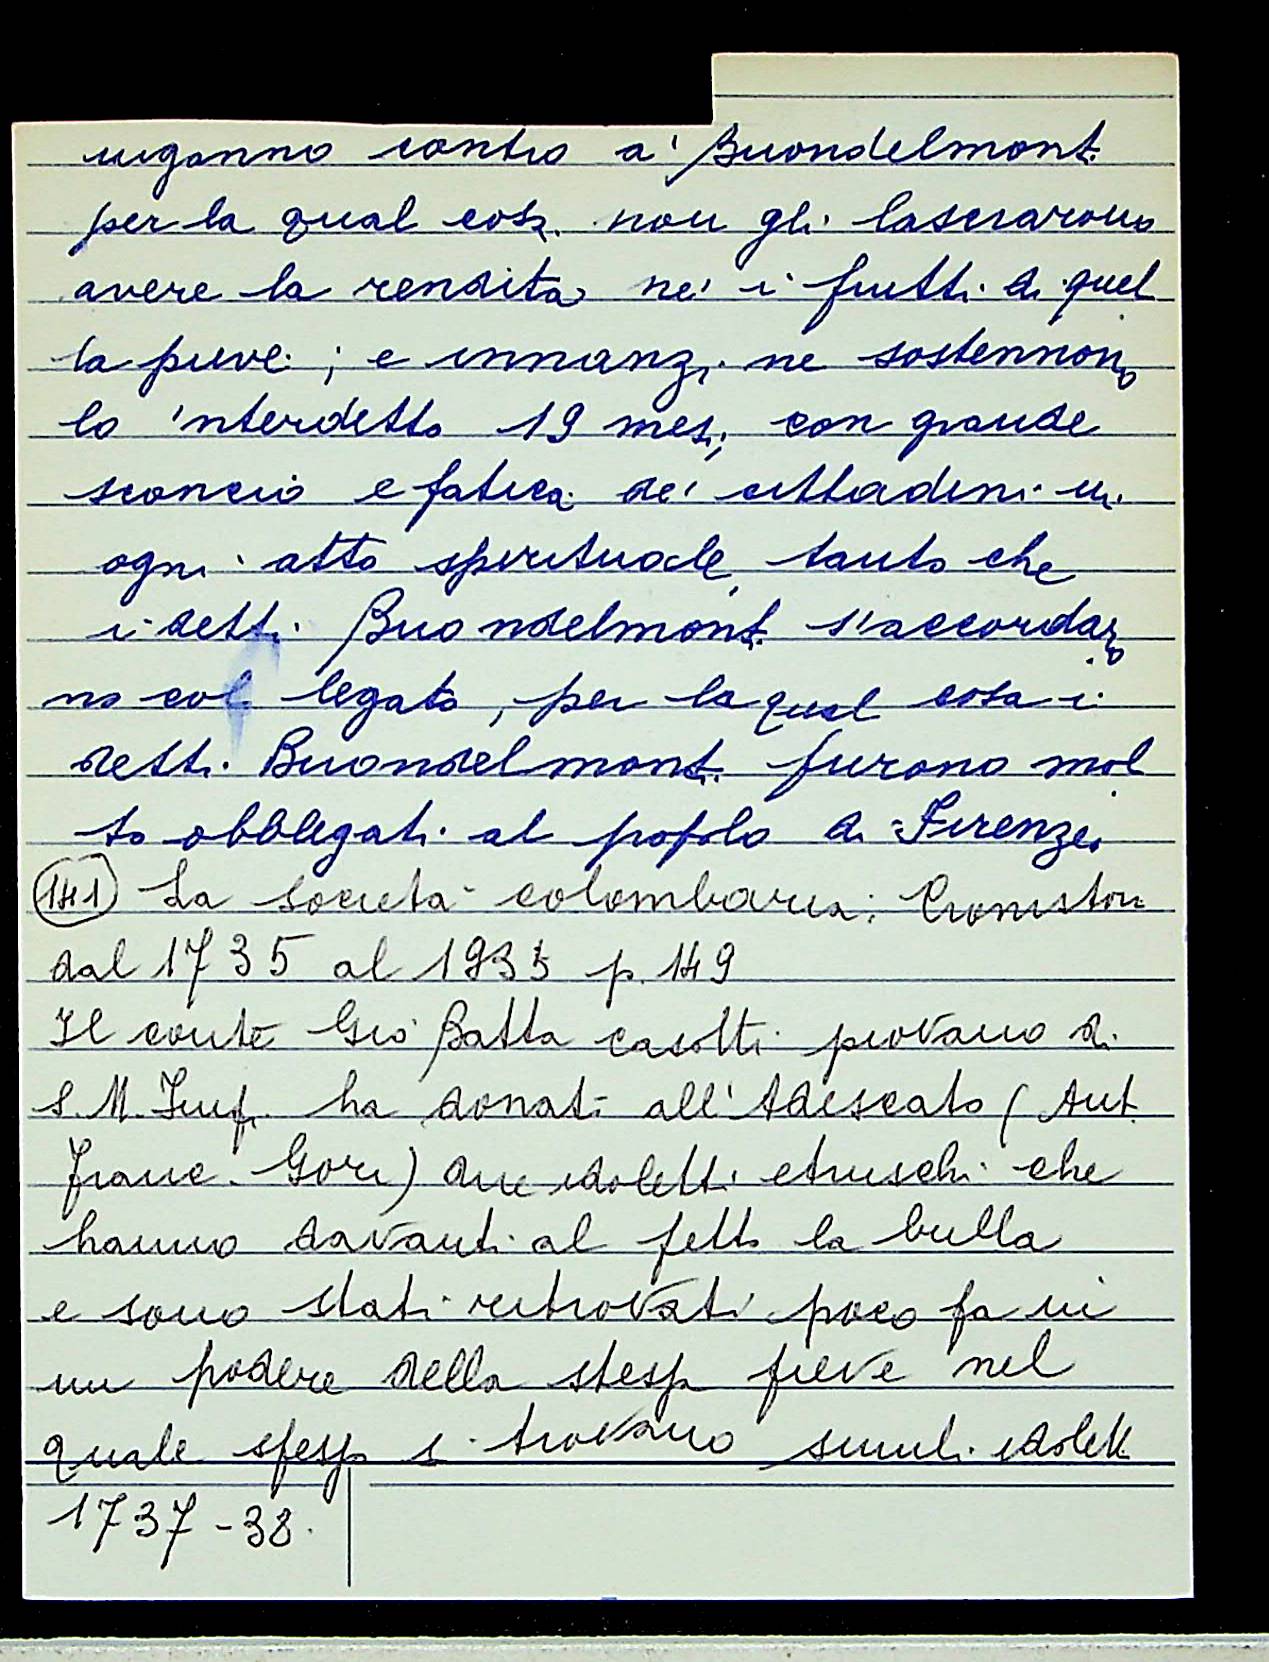 inganno contro a' Buondelmonti
per la qual cosa non gli lasciarono
avere la rendita né i frutti di quel
la pieve; e innanzi ne sostennono
lo 'nterdetto 19 mesi, con grande
sconcio e fatica de' cittadini in
ogni atto spirituale, tanto che
i detti Buondelmonti s'accordaro
no col legato, per la qual cosa i
detti Buondelmonti furono mol
to obbligati al popolo di Firenze.
(141) La società colombaria; Cronistoria
dal 1735 al 1935 p. 149
Il conte Gio Batta Casotti piovano di
S. M. Imp. ha donati all' (Ant.
Franc. Gori) due idoletti etruschi che
hanno davanti al petto la bulla
e sono stati ritrovati poco fa in
un podere della stessa pieve nel
quale spesso si trovano simili idoletti
1737-38.